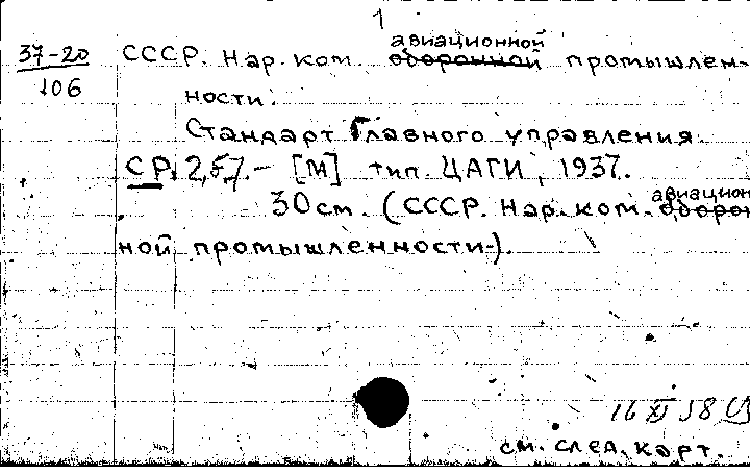 1
37-20
106
авиационной
СССР. Нар. ком. оборонной промышлен-
ности.
Стандарт Главного управления
СР. 2,57.- [М] тип. ЦАГИ, 1937.
авиацион
30 см. (СССР. Нар. ком. оборон
ной промышленности-).
16 XI 58
см. след. карт.